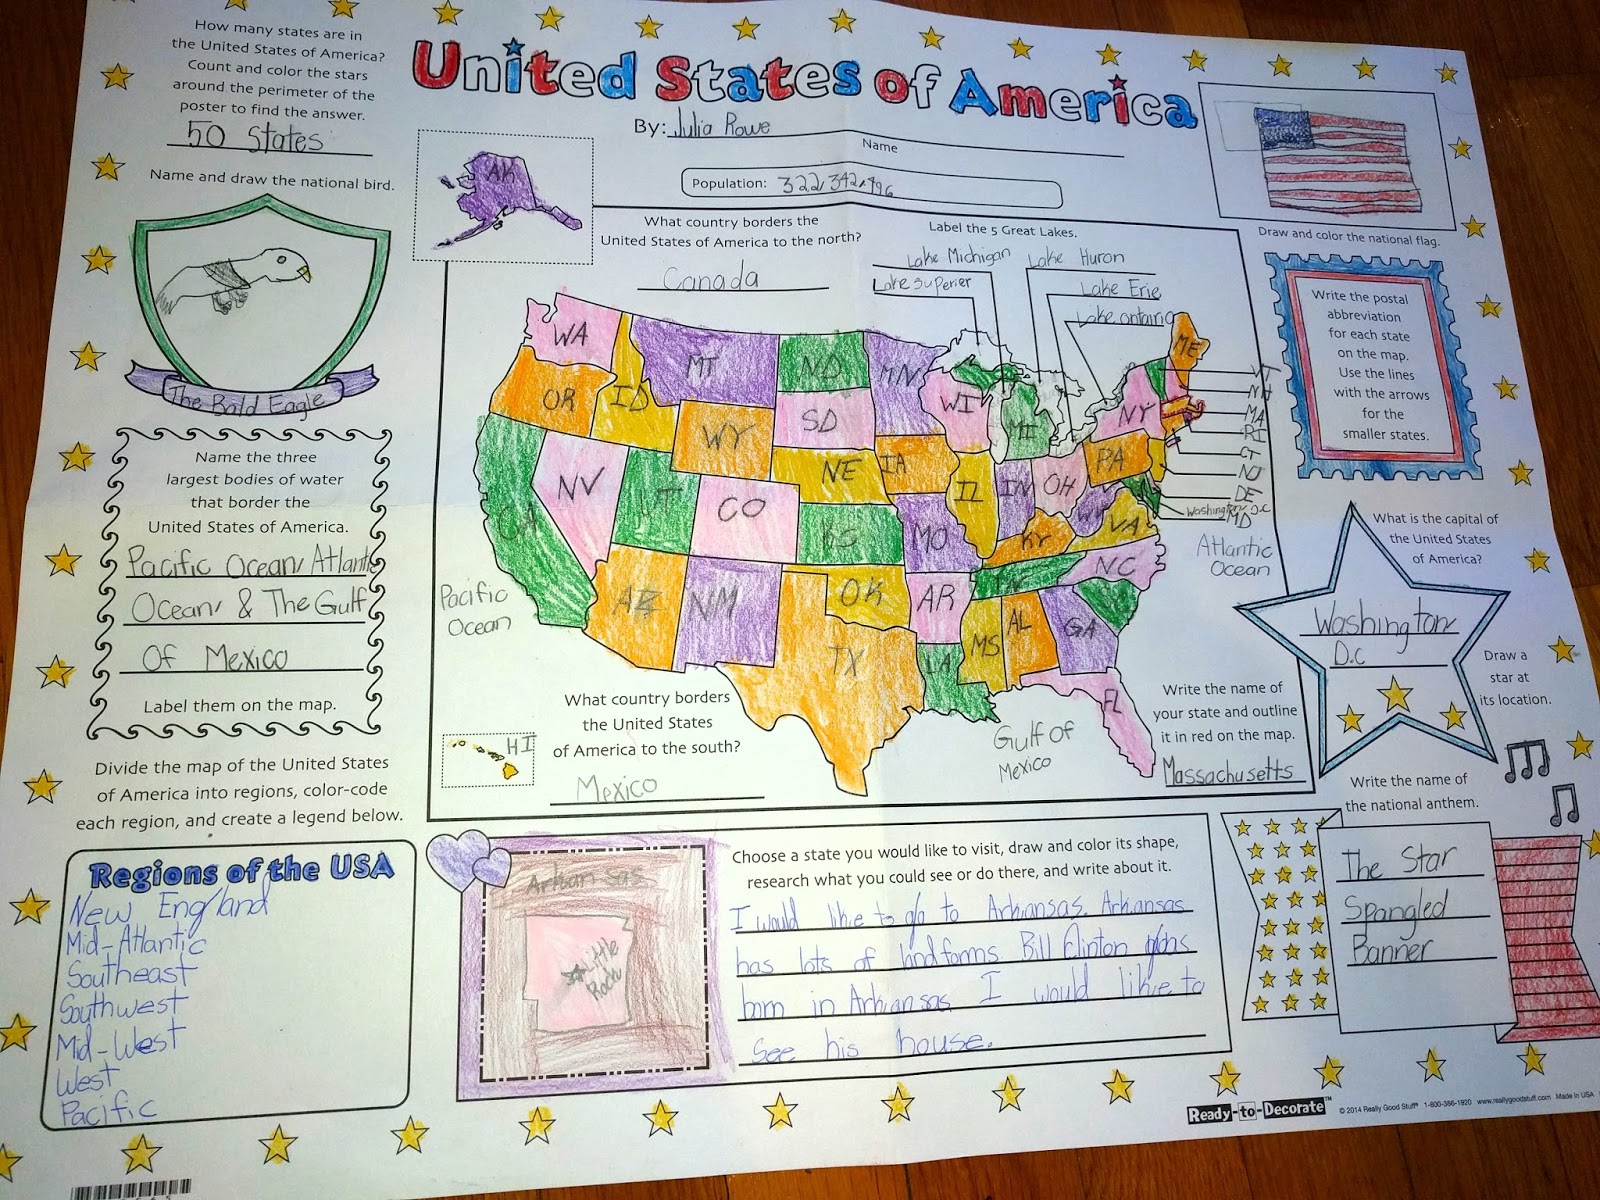 How many states are in
the United States of America?
Count and color the stars
around the perimeter of the
poster to find the answer.
50 States
Name and draw the national bird.
The Bald Eagle
Name the three
largest bodies of water
that border the
United States of America.
Pacific Ocean, Atlantic
Ocean, & The Gulf
Of Mexico
Label them on the map.
Divide the map of the United States
of America into regions, color-code
each region, and create a legend below.
Regions of the USA
New England
Mid-Atlantic
Southeast
Southwest
Mid-West
West
Pacific
United States of America
By: Julia Rowe
Name
Population: 322,342,796
AK
What country borders the
United States of America to the north?
Canada
Label the 5 Great Lakes.
Lake Michigan
Lake Huron
Lake Superier
Lake Erie
Lake ontairio
WA
MT
ND
MN
ME
OR
ID
SD
WI
MI
NY
WY
NE
IA
PA
NV
UT
CO
KS
IL
IN
OH
WV
VA
CA
MO
KY
NC
AZ
NM
OK
AR
TN
TX
LA
MS
AL
GA
FL
HI
VT
NH
MA
RI
CT
NJ
DE
Washington D.C
MD
Pacific
Ocean
Atlantic
Ocean
Gulf of
Mexico
What country borders
the United States
of America to the south?
Mexico
Write the name of
your state and outline
it in red on the map.
Massachusetts
Draw and color the national flag.
Write the postal
abbreviation
for each state
on the map.
Use the lines
with the arrows
for the
smaller states.
What is the capital of
the United States
of America?
Washington,
D.c
Draw a
star at
its location.
Write the name of
the national anthem.
The Star
Spangled
Banner
Arkansas
Little
Rock
Choose a state you would like to visit, draw and color its shape,
research what you could see or do there, and write about it.
I would like to go to Arkansas. Arkansas
has lots of landforms Bill Clinton was
born in Arkansas I would like to
see his house.
Ready-to-Decorate™
© 2014 Really Good Stuff® 1-800-366-1920 www.reallygoodstuff.com Made in USA